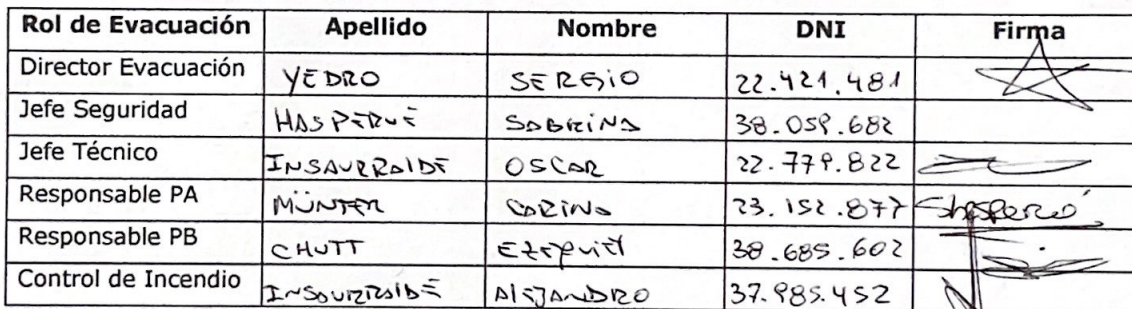 Rol de Evacuación Apellido Nombre DNI Firma
Director Evacuación YEDRO SERGIO 22.421.481
Jefe Seguridad HASPERUÉ SABRINA 38.059.682
Jefe Técnico INSAURRALDE OSCAR 22.779.822
Responsable PA MÜNTER CARINA 23.152.877
Responsable PB CHUTT EZEQUIEL 38.685.602
Control de Incendio INSAURRALDE ALEJANDRO 37.985.452